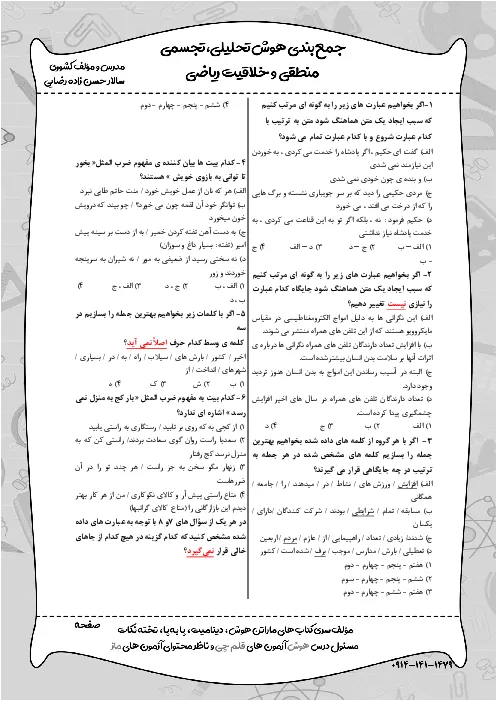 جمع بندی هوش تحلیلی، تجسمی
منطقی و خلاقیت ریاضی
مدرس و مؤلف کشوری
سالار حسن زاده رضایی
۱-اگر بخواهیم عبارت های زیر را به گونه ای مرتب کنیم
که سبب ایجاد یک متن هماهنگ شود متن به ترتیب با
کدام عبارت شروع و با کدام عبارت تمام می شود؟
الف) گفت ای حکیم ،اگر پادشاه را خدمت می کردی ، به خوردن
این نیازمند نمی شدی
ب) و بنده ی چون خودی نمی شدی
ج) مردی حکیمی را دید که بر سر جویباری نشسته و برگ هایی
را که از درخت می افتد ، می خورد
د) حکیم فرمود: نه ، بلکه اگر تو به این قناعت می کردی ، به
خدمت پادشاه نیاز نداشتی
۱) الف – ب ۲) ج – د ۳) د – الف ۴) ج
– ب
۲- اگر بخواهیم عبارت های زیر را به گونه ای مرتب کنیم
که سبب ایجاد یک متن هماهنگ شود جایگاه کدام عبارت
را نیازی نیست تغییر دهیم؟
الف) این نگرانی ها به دلیل امواج الکترومغناطیسی در مقیاس
مایکروویو هستند که از این تلفن های همراه منتشر می شوند.
ب) با افزایش تعداد دارندگان تلفن های همراه نگرانی ها درباره ی
اثرات آنها بر سلامت بدن انسان بیشتر شده است.
ج) البته در آسیب رساندن این امواج به بدن انسان هنوز تردید
وجود دارد.
د) تعداد دارندگان تلفن های همراه در سال های اخیر افزایش
چشمگیری پیدا کرده است.
۱) الف ۲) ب ۳) ج ۴) د
۳- اگر با هر گروه از کلمه های داده شده بخواهیم بهترین
جمله را بسازیم کلمه های مشخص شده در هر جمله به
ترتیب در چه جایگاهی قرار می گیرند؟
الف) افزایش / ورزش های / نشاط / در / میدهند / را / جامعه /
همگانی
ب) مسابقه / تمام / شرایطی / بودند / شرکت کنندگان /دارای /
یکسان
ج) شدند/ زیادی / تعداد / راهپیمایی /از / عازم / مردم / اربعین
د) تعطیلی / بارش / مدارس / موجب / برف / شده است / کشور
۱) هفتم – پنجم – چهارم – دوم
۲) ششم – پنجم – چهارم – سوم
۳) هفتم – ششم – چهارم – دوم
۴) ششم – پنجم – چهارم –دوم
۴- کدام بیت ها بیان کننده ی مفهوم ضرب المثل« بخور
تا توانی به بازوی خویش » هستند؟
الف) هر که نان از عمل خویش خورد / منت حاتم طایی نبرد
ب) توانگر خود آن لقمه چون می خورد؟ / چو بیند که درویش
خون میخورد
ج) به دست آهن تفته کردن خمیر / به از دست بر سینه پیش
امیر (تفته: بسیار داغ و سوزان)
د) نه سختی رسید از ضعیفی به مور / نه شیران به سرپنجه
خوردند و زور
۱) الف ، ب ۲) ج ، د ۳) الف ، ج ۴)
ب ، د
۵- اگر با کلمات زیر بخواهیم بهترین جمله را بسازیم در
سه
کلمه ی وسط کدام حرف اصلاً نمی آید؟
اخیر / کشور / بارش های / سیلاب / راه / به / در / بسیاری /
شهرهای / انداخت / از
۱) ب ۲) ش ۳) ک ۴) ه
۶- کدام بیت به مفهوم ضرب المثل «بار کج به منزل نمی
رسد » اشاره ای ندارد؟
۱) از کجی به که روی بر تابید / رستگاری به راستی یابید
۲) سعدیا راست روان گوی سعادت بردند/ راستی کن که به
منزل نرسد کج رفتار
۳) زنهار مگو سخن به جز راست / هر چند تو را در آن
ضررهاست
۴) متاع راستی پیش آر و کالای نکوکاری / من از هر کار بهتر
دیدم این بازارگانی را (متاع: کالای گرانبها)
در هر یک از سؤال های ۷و ۸ با توجه به عبارت های داده
شده مشخص کنید که کدام گزینه در هیچ کدام از جاهای
خالی قرار نمی گیرد؟
صفحه
مؤلف سری کتاب های ماراتن هوش ، دینامیت، پا به پا ، تخته نکات
مسئول درس هوش آزمون های قلم چی و ناظر محتوای آزمون های ماز
۰۹۱۴-۱۴۱-۱۴۷۹